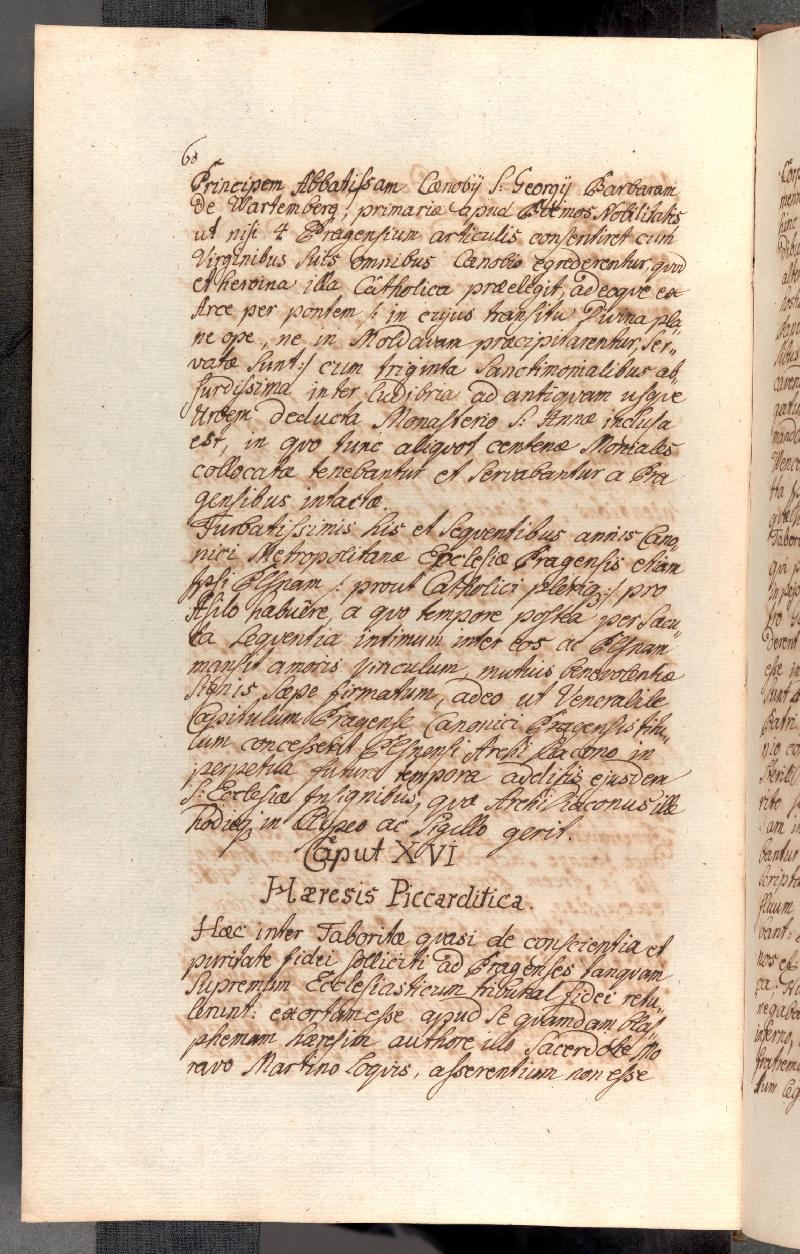 60
Principem Abbatissam Cænobij S: Georgij Barbaram
de Wartemberg, primariæ apud Boëmos Nobilitatis
ut nisi 4 Pragensium articulis consentiret cum
Virginibus suis omnibus Cænobio egrederentur, quod
et heroina illa Catholica præelegit, adeoqve ex
Arce per pontem /: in cujus transitu Divina pla„
ne ope, ne in Moldavam præcipitarentur, ser„
vatæ sunt :/ cum triginta Sanctimonialibus ab
surdissima inter ludibria ad antiquam usqve
Urbem deducta Monasterio S: Annæ inclusa
est, in qvo tunc aliqvot centenæ Moniales
collocatæ tenebantur et servabantur a Pra
gensibus intactæ.
Turbatissimis his et seqventibus annis Cano„
nici Metropolitanæ Ecclesiæ Pragensis etiam
ipsi Pilsnam /: prout Catholici pleriq; :/ pro
Asilo habuêre, a qvo tempore postea per sæcu„
la seqventia intimum inter eos ac Pilsnam
mansit amoris vinculum, mutuis benevolentiæ
signis sæpe firmatum, adeo ut Venerabile
Capitulum Pragense Canonici Pragensis titu„
lum concesserit Pilsnensi Archi Diacono in
perpetua futura tempora adeptis ejusdem
S: Ecclesiæ Insignibus, qvæ Archi Diaconus ille
hodieq; in Clipeo ac Sigillo gerit.
Caput XVI
Hæresis Piccarditica.
Hæc inter Taboritæ qvasi de conscientia et
puritate fidei solliciti ad Pragenses tanqvam
Supremum Ecclesiasticum tribunal fidei retu„
lerunt: exortam esse apud se qvamdam blas„
phemam hæresim authore illo Sacerdote Mo
ravo Martino Loqvis, asserentium non esse